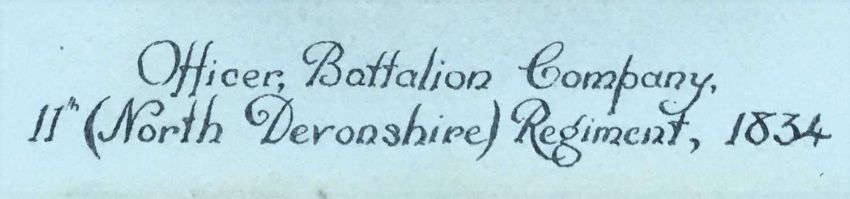 Officer, Battalion Company,
11th (North Devonshire) Regiment, 1834